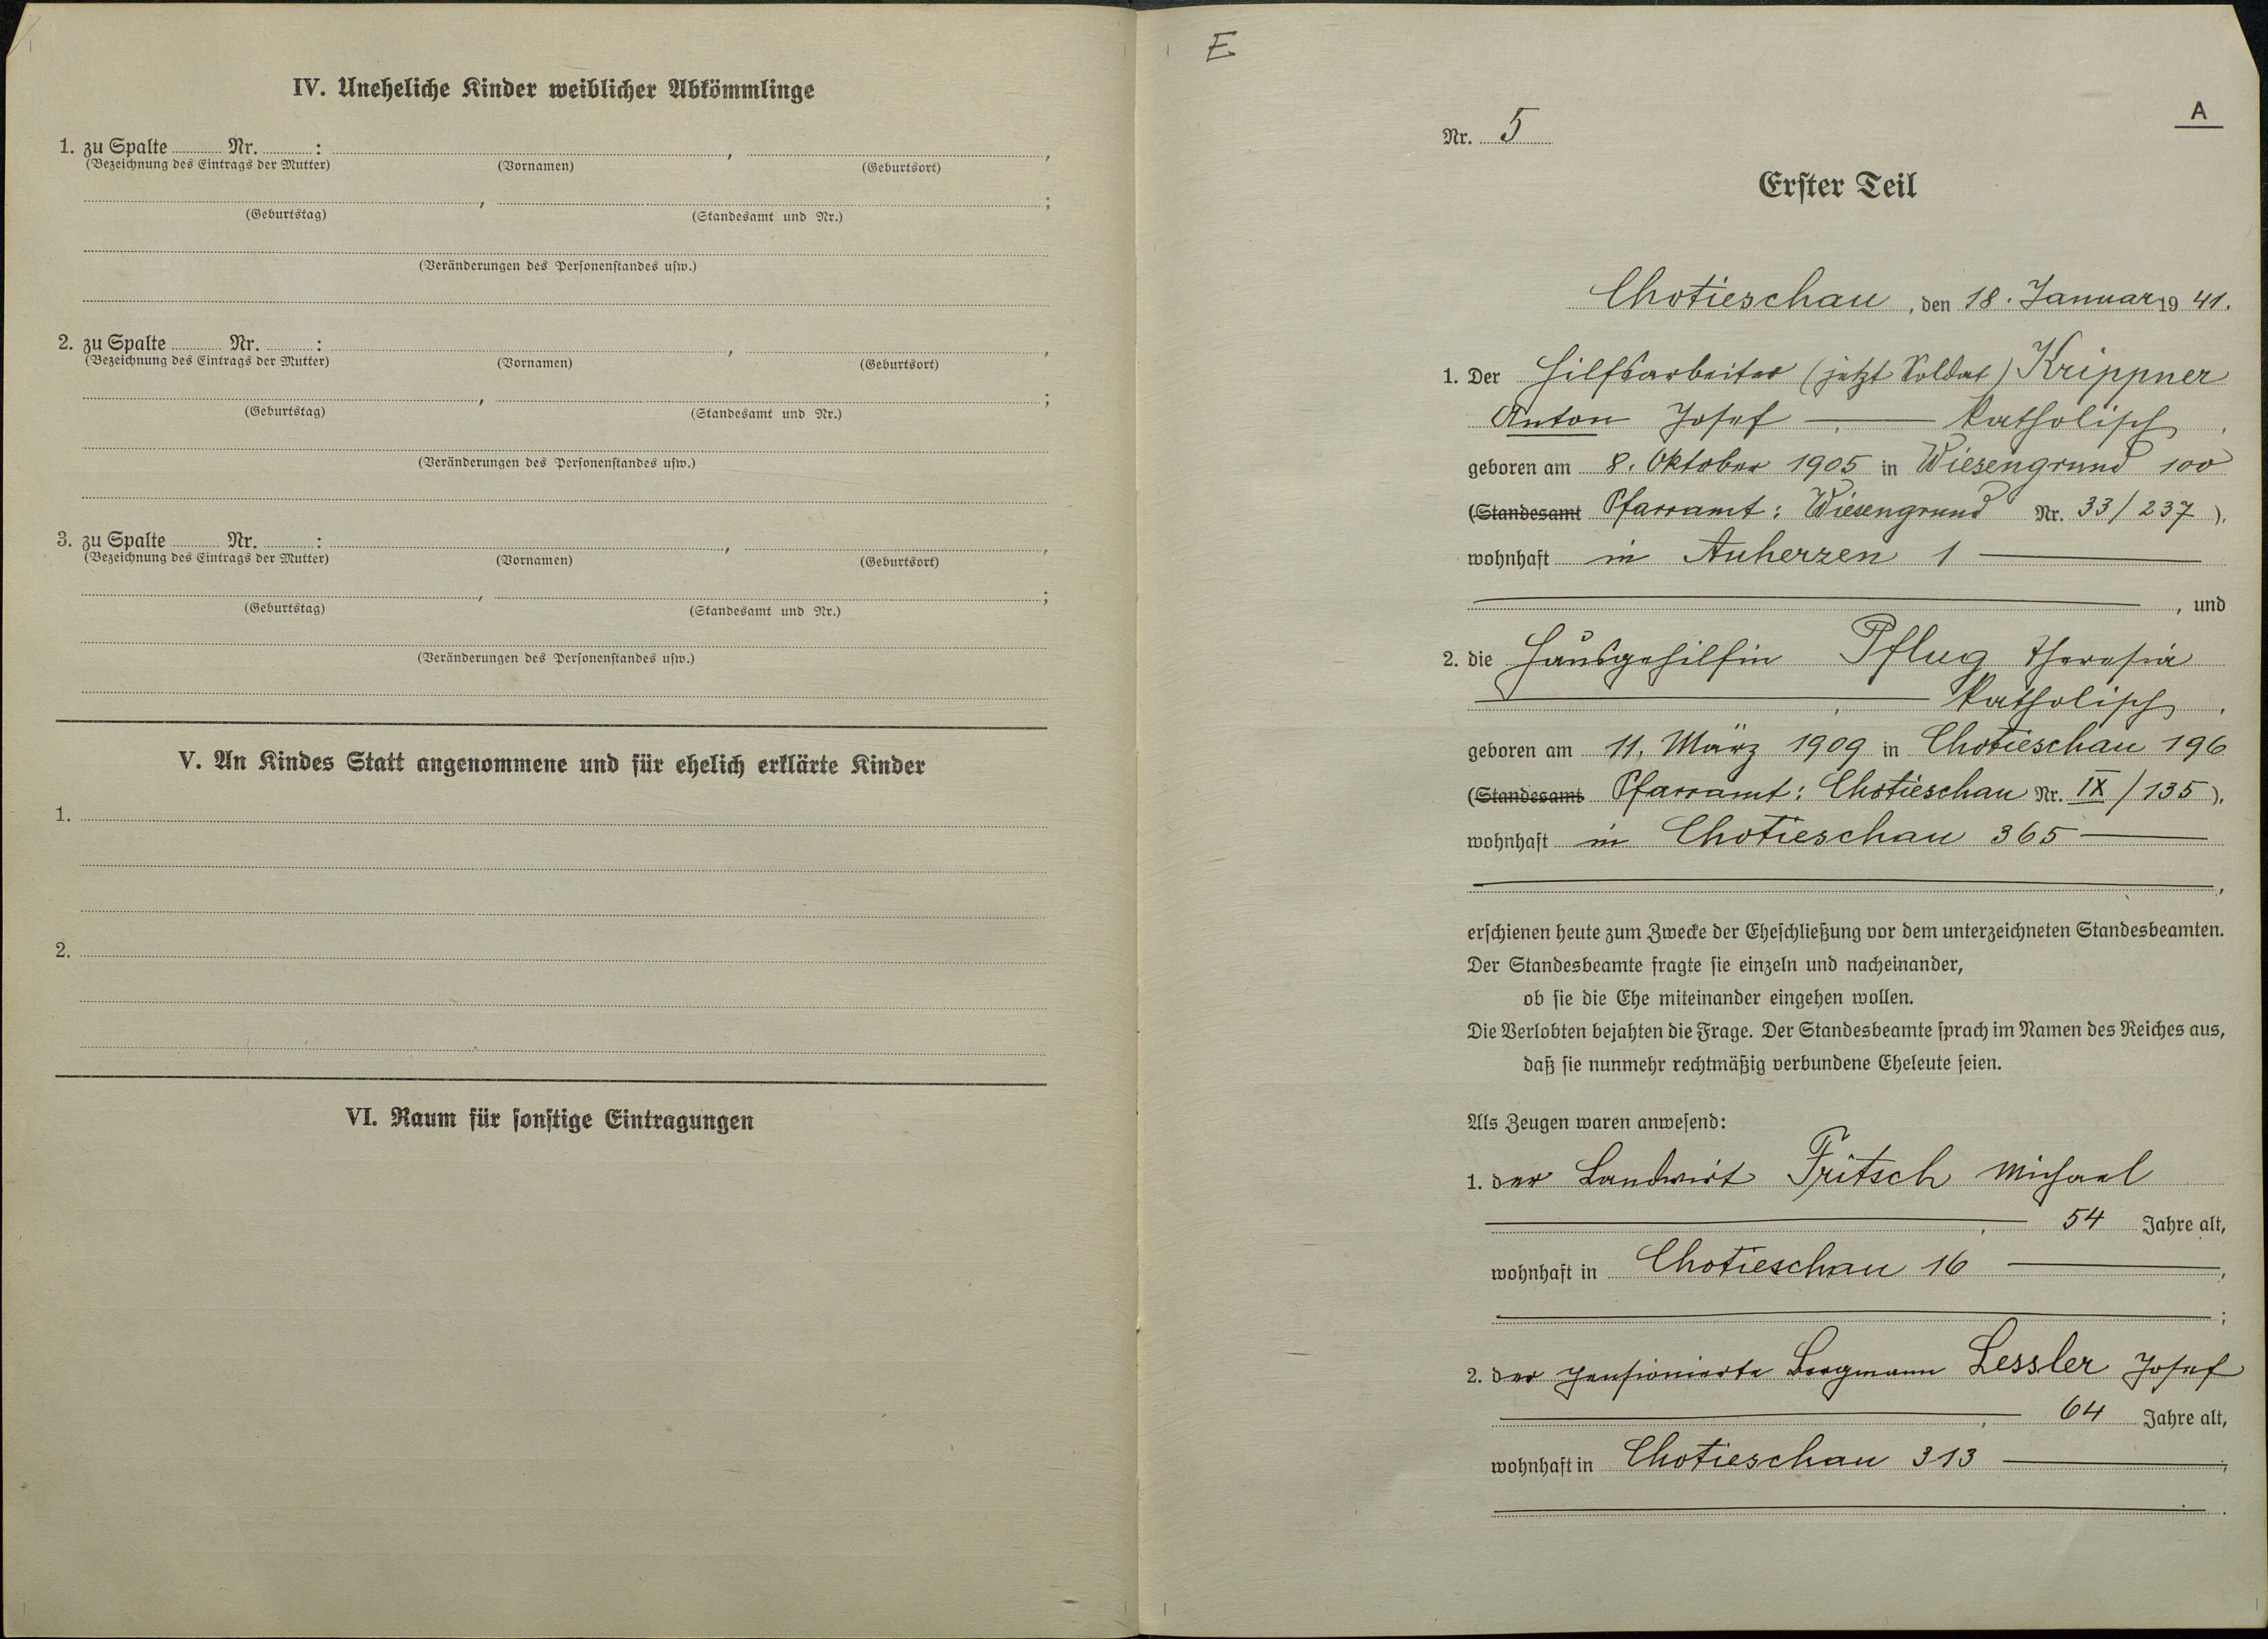 IV. Uneheliche Kinder weiblicher Abkömmlinge
1. zu Spalte ........ Nr. ........ : ........ , ........ ,
(Bezeichnung des Eintrags der Mutter) (Vornamen) (Geburtsort)
........ , ........ ;
(Geburtstag) (Standesamt und Nr.)
(Veränderungen des Personenstandes usw.)
2. zu Spalte ........ Nr. ........ : ........ , ........ ,
(Bezeichnung des Eintrags der Mutter) (Vornamen) (Geburtsort)
........ , ........ ;
(Geburtstag) (Standesamt und Nr.)
(Veränderungen des Personenstandes usw.)
3. zu Spalte ........ Nr. ........ : ........ , ........ ,
(Bezeichnung des Eintrags der Mutter) (Vornamen) (Geburtsort)
........ , ........ ;
(Geburtstag) (Standesamt und Nr.)
(Veränderungen des Personenstandes usw.)
V. An Kindes Statt angenommene und für ehelich erklärte Kinder
1.
2.
VI. Raum für sonstige Eintragungen
E
A
Nr. 5
Erster Teil
Chotieschau, den 18. Januar 1941.
1. Der Hilfsarbeiter (jetzt Soldat) Krippner
Anton Josef — , — katholisch ,
geboren am 8. Oktober 1905 in Wiesengrund 100
(Standesamt Pfarramt: Wiesengrund Nr. 33/237 ),
wohnhaft in Auherzen 1 —
— , und
2. die Hausgehilfin Pflug Theresia
— , — katholisch ,
geboren am 11. März 1909 in Chotieschau 196
(Standesamt Pfarramt: Chotieschau Nr. IX/135 ),
wohnhaft in Chotieschau 365 —
— ,
erschienen heute zum Zwecke der Eheschließung vor dem unterzeichneten Standesbeamten.
Der Standesbeamte fragte sie einzeln und nacheinander,
ob sie die Ehe miteinander eingehen wollen.
Die Verlobten bejahten die Frage. Der Standesbeamte sprach im Namen des Reiches aus,
daß sie nunmehr rechtmäßig verbundene Eheleute seien.
Als Zeugen waren anwesend:
1. der Landwirt Fritsch Michael
— , — 54 Jahre alt,
wohnhaft in Chotieschau 16 — ,
— ;
2. der pensionierte Bergmann Lessler Josef
— , — 64 Jahre alt,
wohnhaft in Chotieschau 313 — ,
— .